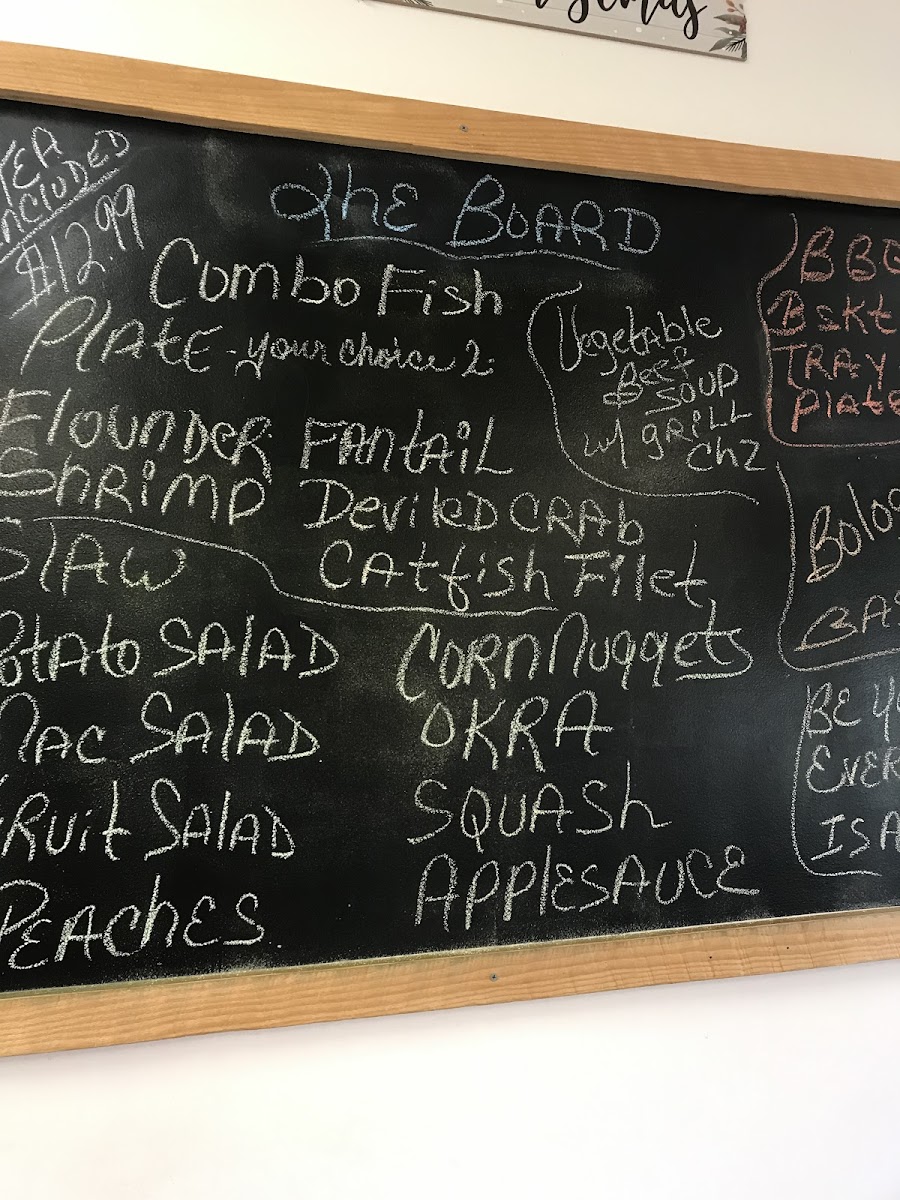 INCLUDED
$12.99
The BOARD
Combo Fish
PlAtE - your choice 2.
FlounDER FANtAiL
ShRimp DevileD CRAb
CAtfish Filet
Vegetable
Beef
SOUP
w/ gRiLL
Chz
BBQ
BSKt
TRAY
PlAtE
SlAW
PotAto SAlAD
MAC SAlAD
FRuit SAlAD
PEAChES
CORN Nuggets
OKRA
SQUASh
APPlESAUCE
BE
IS